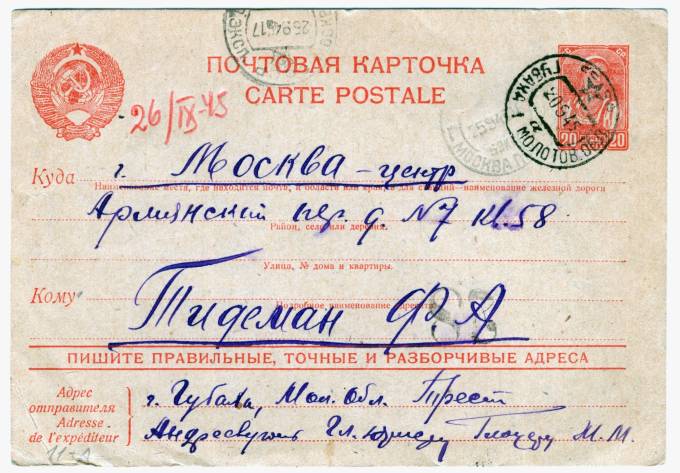 ПОЧТОВАЯ КАРТОЧКА
CARTE POSTALE
26/IX-45
ГУБАХА 1 МОЛОТОВ. ОБЛ.
20 9 45
20 20
25 9 45 17
МОСКВА
Куда г. Москва-центр
Наименование места, где находится почта, и области или края, а для станций—наименование железной дороги
Армянский пер. д. N7 кв. 58
Район, село или деревня
Улица, № дома и квартиры.
Кому Тидеман Ф А
Подробное наименование адресата
ПИШИТЕ ПРАВИЛЬНЫЕ, ТОЧНЫЕ И РАЗБОРЧИВЫЕ АДРЕСА
Адрес отправителя
Adresse de l'expéditeur
г. Губаха, Мол. Обл. Трест
Андреевуголь Гл. М. М.